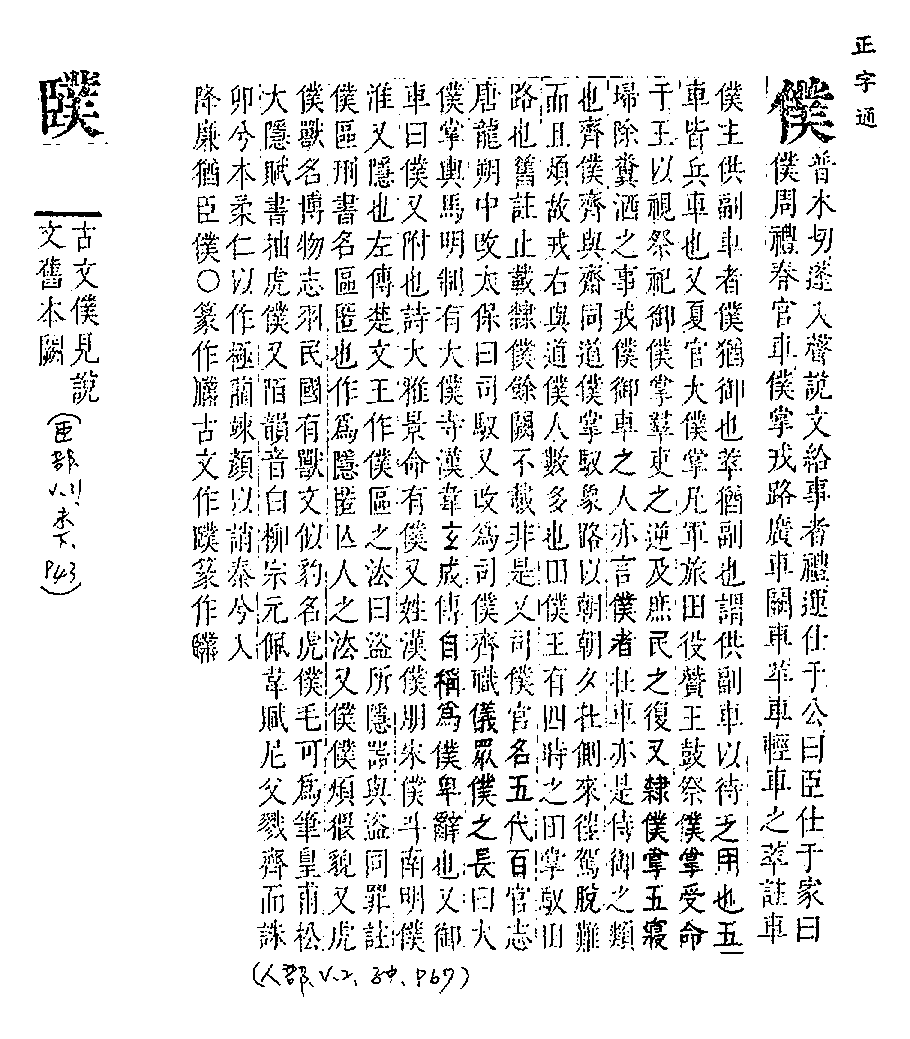 正字通
僕
普木切蓬入聲說文給事者禮運仕于公曰臣仕于家曰
僕周禮春官車僕掌戎路廣車闕車萃車輕車之萃註車
僕主供副車者僕猶御也萃猶副也謂供副車以待乏用也五
車皆兵車也又夏官大僕掌凡軍旅田役贊王鼓祭僕掌受命
于王以視祭祀御僕掌羣吏之逆及庶民之復又隸僕掌五寢
埽除糞洒之事戎僕御車之人亦言僕者在車亦是侍御之類
也齊僕齊與齋同道僕掌馭象路以朝朝夕在側來徃駕脫難
而且煩故戎右與道僕人數多也田僕王有四時之田掌馭田
路也舊註止載隸僕餘闕不載非是又司僕官名五代百官志
唐龍朔中改太保曰司馭又改爲司僕齊職儀眾僕之長曰大
僕掌輿馬明制有大僕寺漢韋玄成傳自稱爲僕卑辭也又御
車曰僕又附也詩大雅景命有僕又姓漢僕朋宋僕斗南明僕
淮又隱也左傳楚文王作僕區之法曰盜所隱器與盜同罪註
僕區刑書名區匿也作爲隱匿亾人之法又僕僕煩猥貌又虎
僕獸名博物志羽民國有獸文似豹名虎僕毛可爲筆皇甫松
大隱賦書抽虎僕又陌韻音白柳宗元佩韋賦尼父戮齊而誅
卯兮本柔仁以作極藺竦顏以誚秦兮入
降廉猶臣僕○篆作䑑古文作𦣼篆作
(人部、v.2,子中、p67)
𦣼
古文僕見說
文舊本闕
(臣部 v.11,未下、p43)